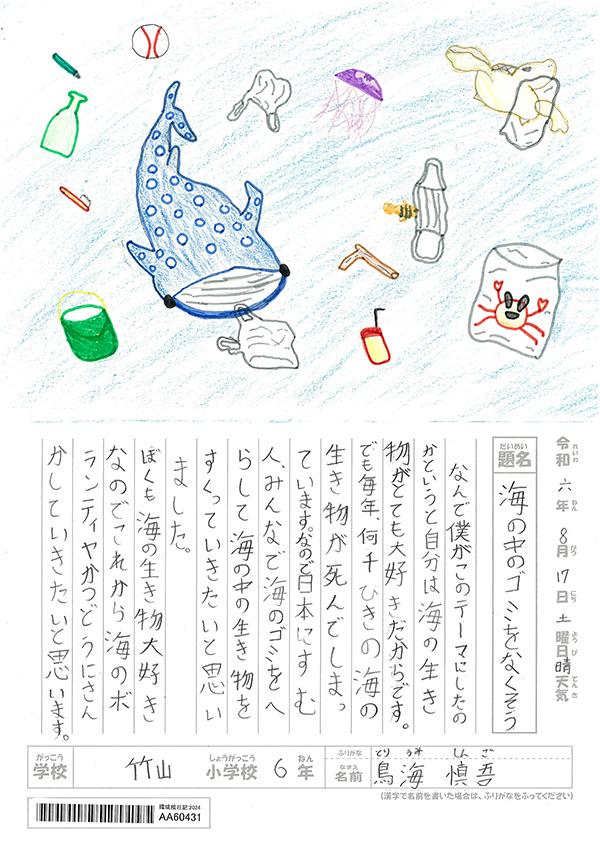 令和六年8月17日土曜日晴天気
れいわ ねん がつ にち ようび てんき
だいめい
題名
海の中のゴミをなくそう
なんで僕がこのテーマにしたの
かというと自分は海の生き
物がとても大好きだからです。
でも毎年、何千ひきの海の
生き物が死んでしまっ
ています。なので日本にすむ
人、みんなで海のゴミをへ
らして海の中の生き物を
すくっていきたいと思い
ました。
ぼくも海の生き物大好き
なのでこれから海のボ
ランティヤかつどうにさん
かしていきたいと思います。
がっこう しょうがっこう ねん ふりがな とりうみ しんご
学校 竹山 小学校 6年 なまえ 名前 鳥海 慎吾
(漢字で名前を書いた場合は、ふりがなをふってください)
環境絵日記2024
AA60431